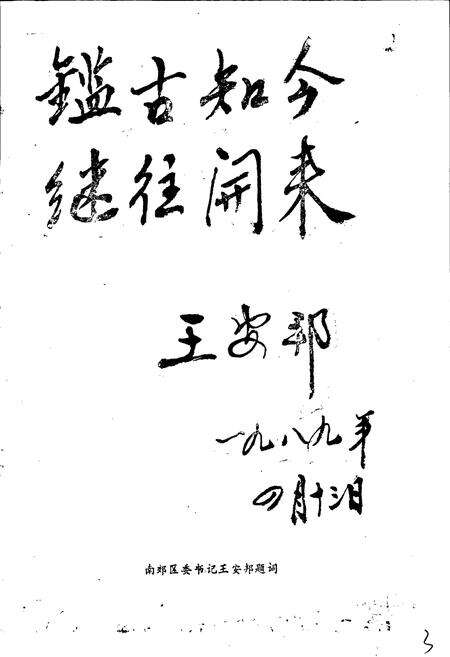 鑑古知今
继往开来
王安邦
一九八九年
四月十三日
南郊区委书记王安邦题词
3